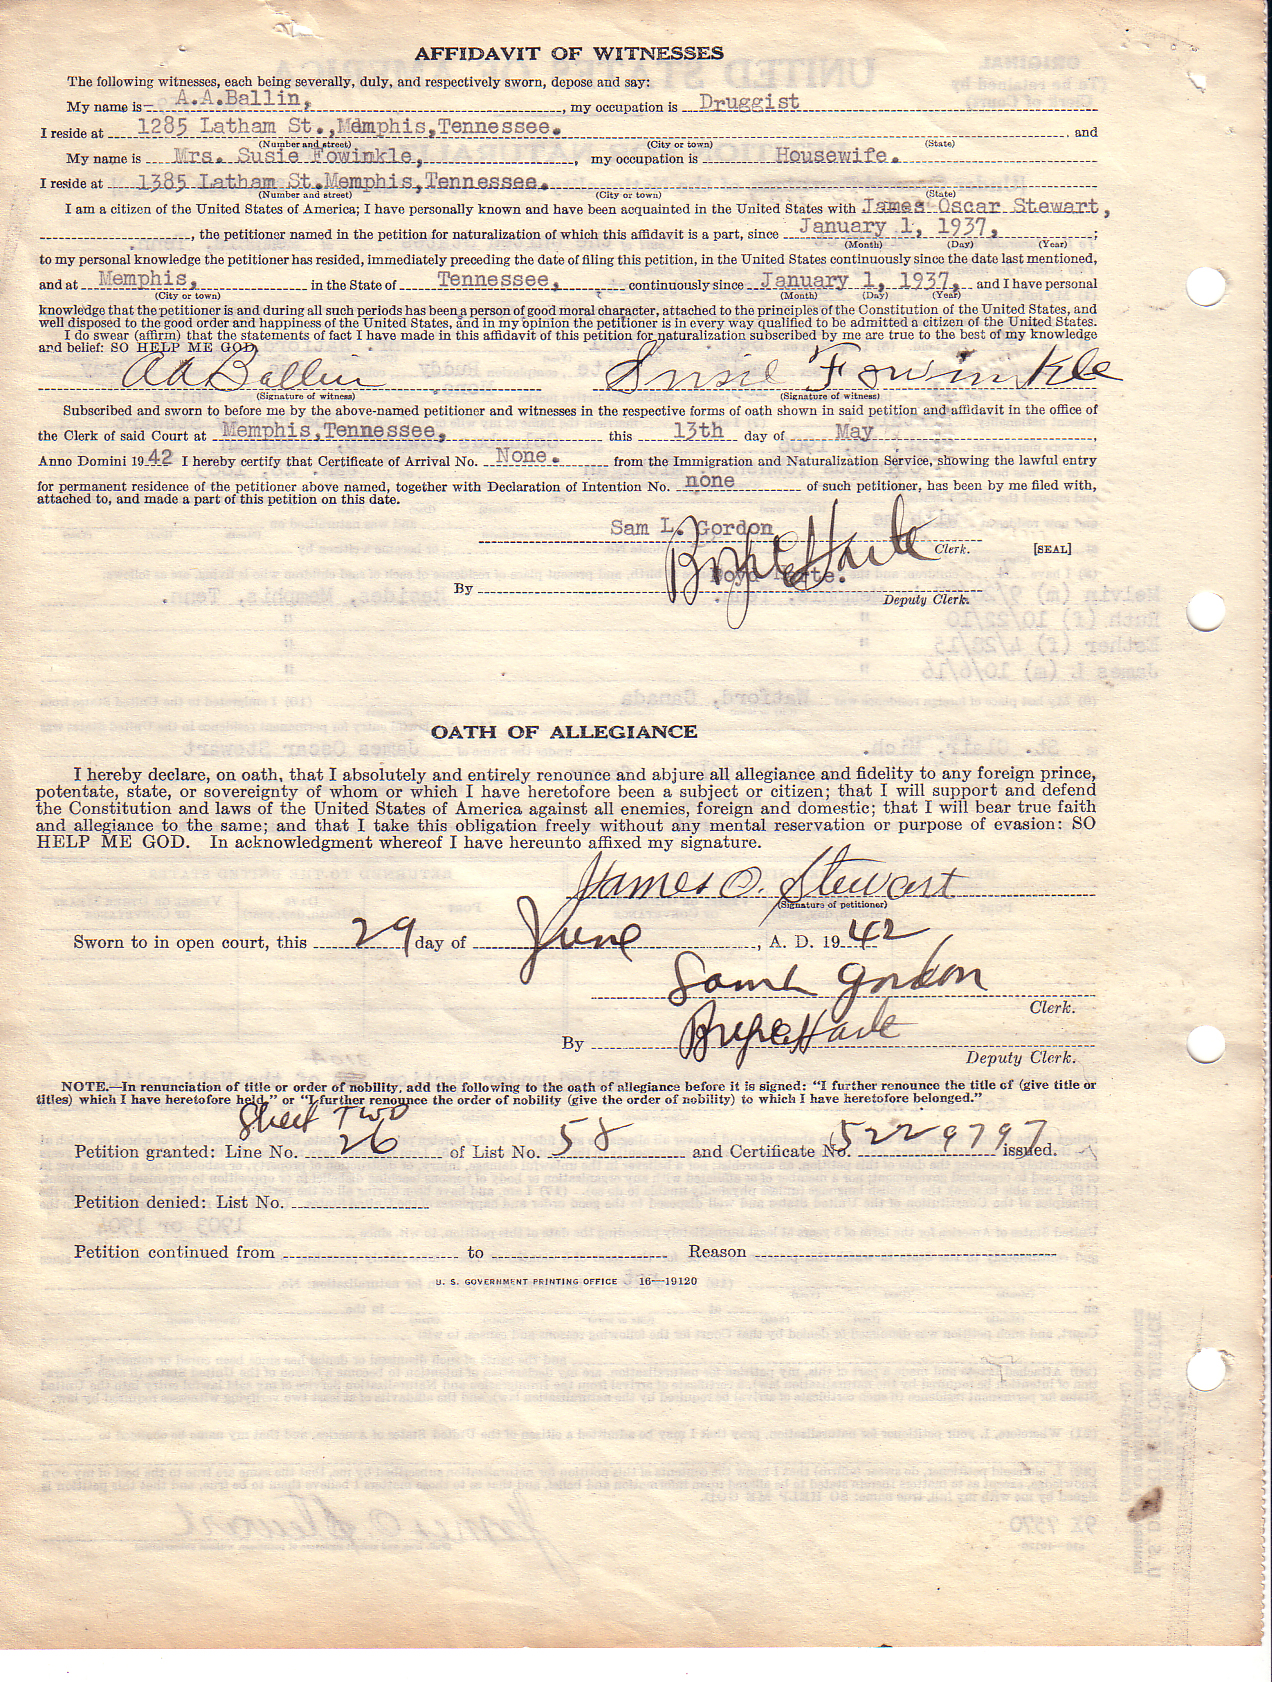 AFFIDAVIT OF WITNESSES
The following witnesses, each being severally, duly, and respectively sworn, depose and say:
My name is A.A.Ballin, , my occupation is Druggist
I reside at 1285 Latham St.,Memphis,Tennessee. , and
(Number and street) (City or town) (State)
My name is Mrs. Susie Fowinkle, , my occupation is Housewife.
I reside at 1385 Latham St.Memphis,Tennessee.
(Number and street) (City or town) (State)
I am a citizen of the United States of America; I have personally known and have been acquainted in the United States with James Oscar Stewart,
, the petitioner named in the petition for naturalization of which this affidavit is a part, since January 1, 1937, ;
(Month) (Day) (Year)
to my personal knowledge the petitioner has resided, immediately preceding the date of filing this petition, in the United States continuously since the date last mentioned,
and at Memphis, in the State of Tennessee, continuously since January 1, 1937, and I have personal
(City or town) (Month) (Day) (Year)
knowledge that the petitioner is and during all such periods has been a person of good moral character, attached to the principles of the Constitution of the United States, and
well disposed to the good order and happiness of the United States, and in my opinion the petitioner is in every way qualified to be admitted a citizen of the United States.
I do swear (affirm) that the statements of fact I have made in this affidavit of this petition for naturalization subscribed by me are true to the best of my knowledge
and belief: SO HELP ME GOD.
AA Ballin Susie Fowinkle
(Signature of witness) (Signature of witness)
Subscribed and sworn to before me by the above-named petitioner and witnesses in the respective forms of oath shown in said petition and affidavit in the office of
the Clerk of said Court at Memphis,Tennessee, this 13th day of May ,
Anno Domini 1942 I hereby certify that Certificate of Arrival No. None. from the Immigration and Naturalization Service, showing the lawful entry
for permanent residence of the petitioner above named, together with Declaration of Intention No. none of such petitioner, has been by me filed with,
attached to, and made a part of this petition on this date.
Sam L. Gordon
Clerk. [SEAL]
By Boyd Harte.
Deputy Clerk.
OATH OF ALLEGIANCE
I hereby declare, on oath, that I absolutely and entirely renounce and abjure all allegiance and fidelity to any foreign prince,
potentate, state, or sovereignty of whom or which I have heretofore been a subject or citizen; that I will support and defend
the Constitution and laws of the United States of America against all enemies, foreign and domestic; that I will bear true faith
and allegiance to the same; and that I take this obligation freely without any mental reservation or purpose of evasion: SO
HELP ME GOD. In acknowledgment whereof I have hereunto affixed my signature.
James O. Stewart
(Signature of petitioner)
Sworn to in open court, this 29 day of June , A. D. 1942
Sam L Gordon
Clerk.
By
Deputy Clerk.
NOTE.—In renunciation of title or order of nobility, add the following to the oath of allegiance before it is signed: "I further renounce the title of (give title or
titles) which I have heretofore held," or "I further renounce the order of nobility (give the order of nobility) to which I have heretofore belonged."
Sheet TWO
Petition granted: Line No. 26 of List No. 58 and Certificate No. 5229797 issued.
Petition denied: List No.
Petition continued from to Reason
U. S. GOVERNMENT PRINTING OFFICE 16—19120